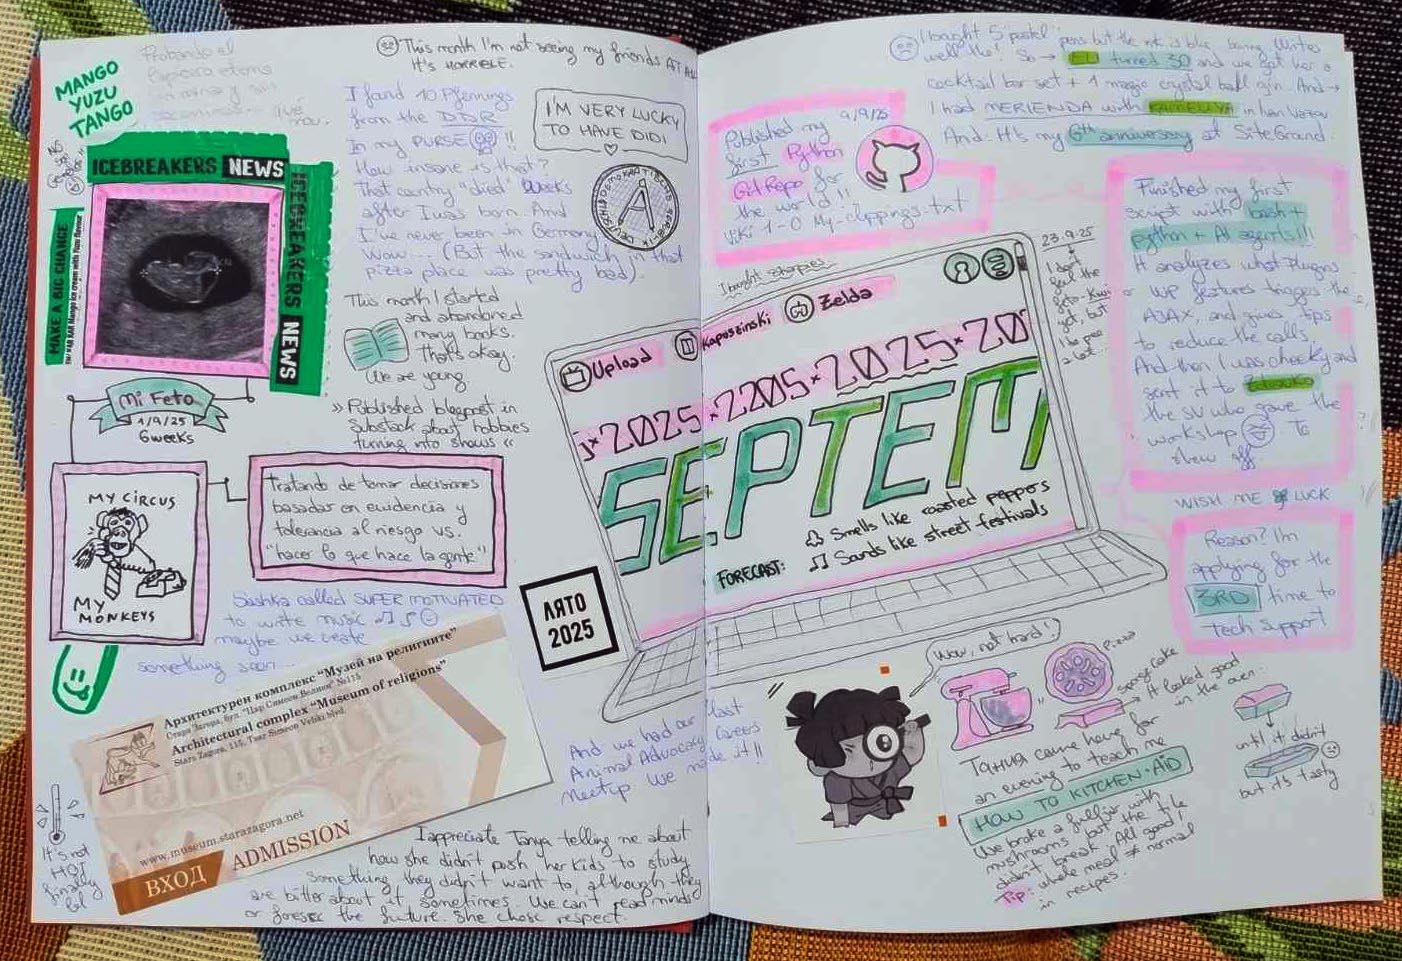 Probando el
MANGO
YUZU
TANGO
ICEBREAKERS NEWS
ICEBREAKERS NEWS
MAKE A BIG CHANGE
Mi Feto
1/9/25
6 weeks
MY CIRCUS
MY
MONKEYS
Tratando de tomar decisiones
basadas en evidencia y
tolerancia al riesgo vs.
"hacer lo que hace la gente"
This month I'm not seeing my friends AT ALL
It's HORRIBLE.
I found 10 Pfennings
from the DDR
In my PURSE !!
How insane is that?
That country "died" weeks
after I was born. And
I've never been in Germany
Wow... (But the sandwich in that
pizza place was pretty bad).
I'M VERY LUCKY
TO HAVE DIDI
This month I started
and abandoned
many books.
That's okay.
We are young
» Published blogpost in
Substack about hobbies
turning into shows «
Sashka called SUPER MOTIVATED
to write music
maybe we create
something soon...
Архитектурен комплекс "Музей на религиите"
Стара Загора, бул. "Цар Симеон Велики" №115
Architectural complex "Museum of religions"
Stara Zagora, 115, Tsar Simeon Veliki blvd.
www.museum.starazagora.net
ВХОД ADMISSION
It's not
HOT
finally
lol
I appreciate Tanya telling me about
how she didn't push her kids to study
something they didn't want to, although they
are bitter about it sometimes. We can't read minds
or foresee the future. She chose respect.
ЛЯТО
2025
And we had our last
Animal Advocacy Careers
Meetup. We made it!!
I bought shapes
Upload
Kaposzinski
Zelda
2025 × 2205 × 2025 × 20
SEPTEM
FORECAST:
Smells like roasted peppers
Sounds like street festivals
I bought 5 pastel pens but the ink is blue, being writes
well tho! So → ELI turned 30 and we got her a
cocktail bar set + 1 magic crystal ball gin. And →
I had MERIENDA with KAMELIYA in Ivan Vazov
And It's my 6th anniversary at SiteGround.
9/9/25
Published my
first Python
Git Repo for
the world!!
Wiki 1-0 My-clippings.txt
23.9.25
I don't
feel the
feto-kiwi
yet, but
I do pee
a lot...
Finished my first
script with bash +
python + AI agents!!!
It analyzes what Plugins
or WP features triggers the
AJAX, and gives tips
to reduce the calls.
And then I was cheeky and
sent it to
the SV who gave the
workshop To
show off
WISH ME LUCK
Reason? I'm
applying for the
3RD time to
Tech Support
Wow, not hard!
Pizza
Spongecake
→ It looked good
in the oven
until it didn't
but it's tasty
Тания came here for
an evening to teach me
HOW TO KITCHEN-AID
We broke a full jar with
mushrooms but the tile
didn't break. All good!
Tip: whole meal ≠ normal
in recipes.